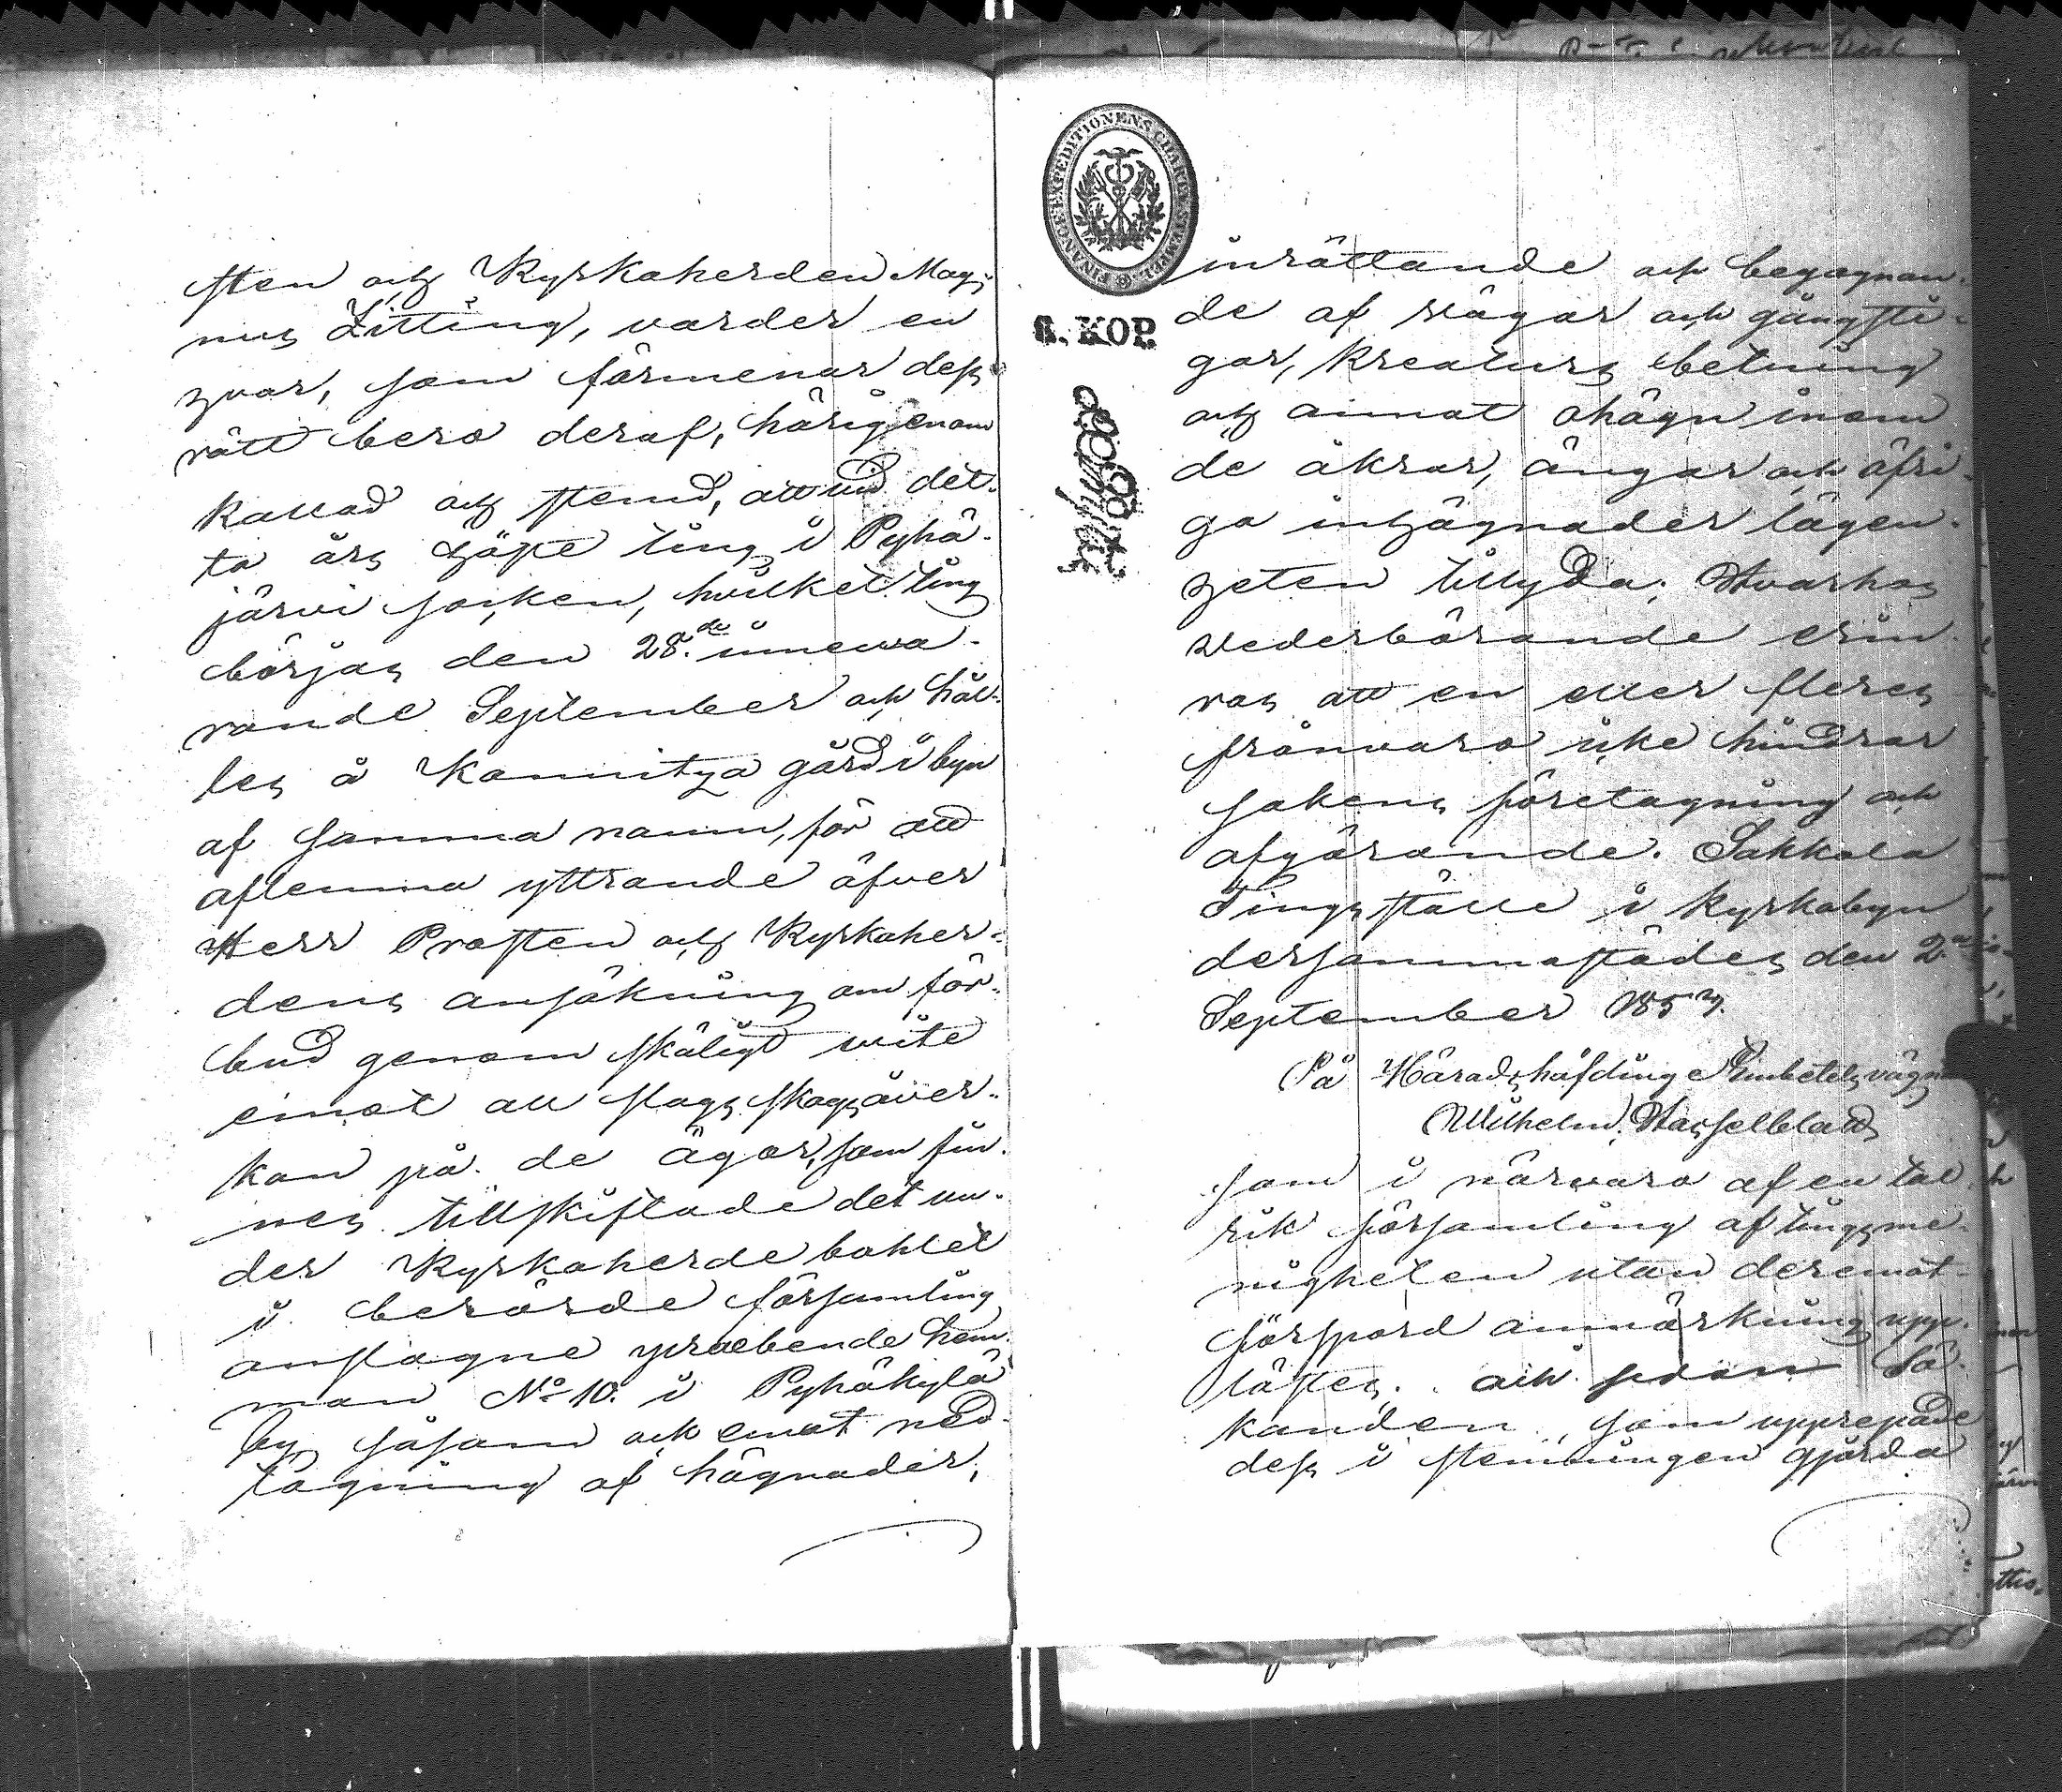 sten och Kyrkoherden Mag-
nus Zitting, varder en
hvar, som förmenar dess
rätt bero deraf, härigenom
kallad och stemd, att vid det-
ta års Höste ting i Pyhä-
järvi socken, hvilket ting
börjas den 28.de innewa-
rande September och hål-
les å Konnitza gård i byn
af samma namn, för att
aflemna yttrande öfver
Herr Prosten och Kyrkoher-
dens ansökning om för-
bud genom skäligt wite
emot all slags skogsåver-
kan på de ägor, som fin-
nes tillskiftade det un-
der Kyrkoherde bohlet
i berörde församling
anslagne præbende hem-
man No 10. i Pyhäkylä
by såsom ock emot ned-
tagning af hägnader,
FINANCE EXPEDITIONENS CHARTÆ STEMPEL
inrättande och begagnan-
KOP.
de af vägar och gångsti-
gar, kreaturs betning
och annat ohägn inom
de åkrar, ängar och öfri-
ga inhägnader lägen-
heten tillyda; Hvarhos
vederbörande erin-
ras att en eller fleres
frånvaro icke hindrar
sakens företagning och
afgörande. Sakkola
Tingsställe i Kyrkobyn
dersammastädes den 2
September 1857.
På Häradshöfdinge Embetets vägnar
Wilhelm Hasselblatt
som i närvaro af en tal-
rik församling af tingsme-
nigheten utan deremot
förspord anmärkning upp-
lästes. och sedan Sö-
kanden, som upprepade
dess i stemningen gjorda